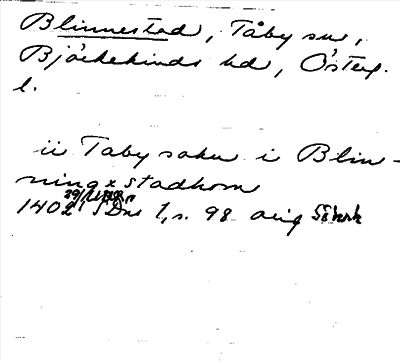 Blinnestad, Tåby sn,
Björkekinds hd, Österg.
l.
ii Taby sokn i Blin-
ning x stadhom
1402 SDns 1, s. 98 orig